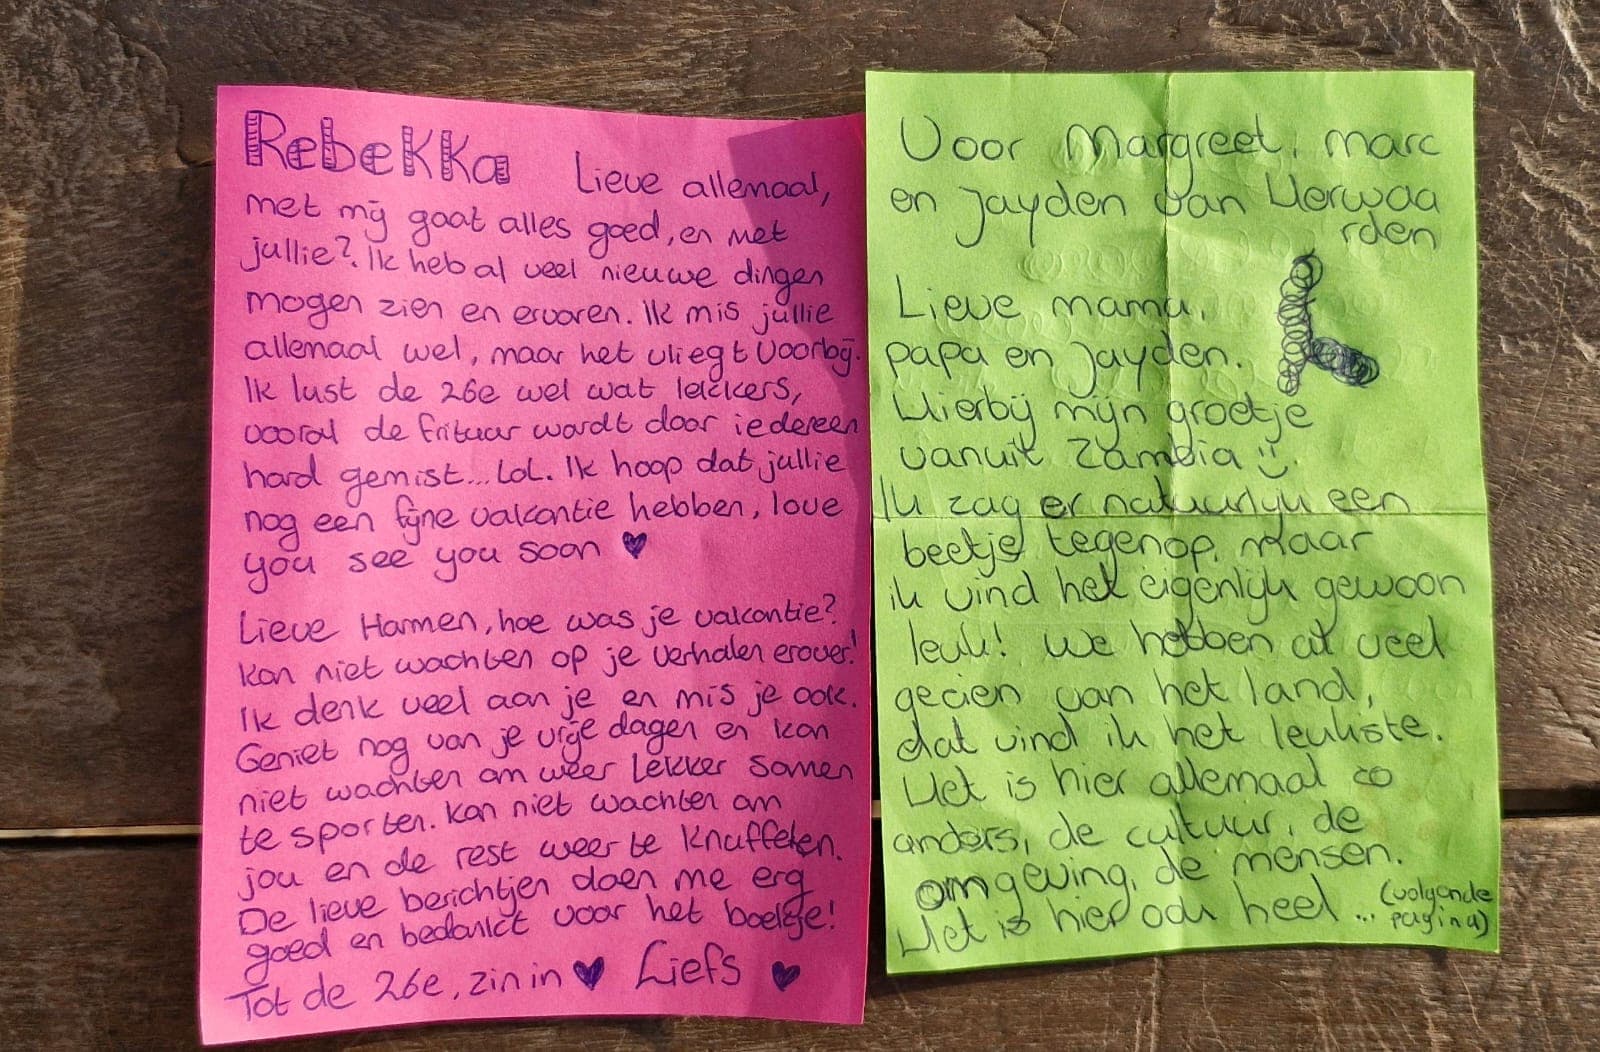 RebeKKa Lieve allemaal,
met mij gaat alles goed, en met
jullie? Ik heb al veel nieuwe dingen
mogen zien en ervaren. Ik mis jullie
allemaal wel, maar het vliegt voorbij.
Ik lust de 26e wel wat lekkers,
vooral de frituur wordt door iedereen
hard gemist... LoL. Ik hoop dat jullie
nog een fijne vakantie hebben, love
you see you soon ♥
Lieve Harmen, hoe was je vakantie?
kan niet wachten op je verhalen erover!
Ik denk veel aan je en mis je ook.
Geniet nog van je vrije dagen en kan
niet wachten om weer lekker samen
te sporten. kan niet wachten om
jou en de rest weer te knuffelen.
De lieve berichtjen doen me erg
goed en bedankt voor het boekje!
Tot de 26e, zin in ♥ Liefs ♥
Voor Margreet, marc
en Jayden van Herwaa
rden
Lieve mama,
papa en Jayden.
Hierbij mijn groetje
vanuit Zambia :).
Ik zag er natuurlijk een
beetje tegenop, maar
ik vind het eigenlijk gewoon
leuk! We hebben al veel
gezien van het land,
dat vind ik het leukste.
Het is hier allemaal zo
anders, de cultuur, de
omgeving, de mensen.
Het is hier ook heel ... (volgende
pagina)